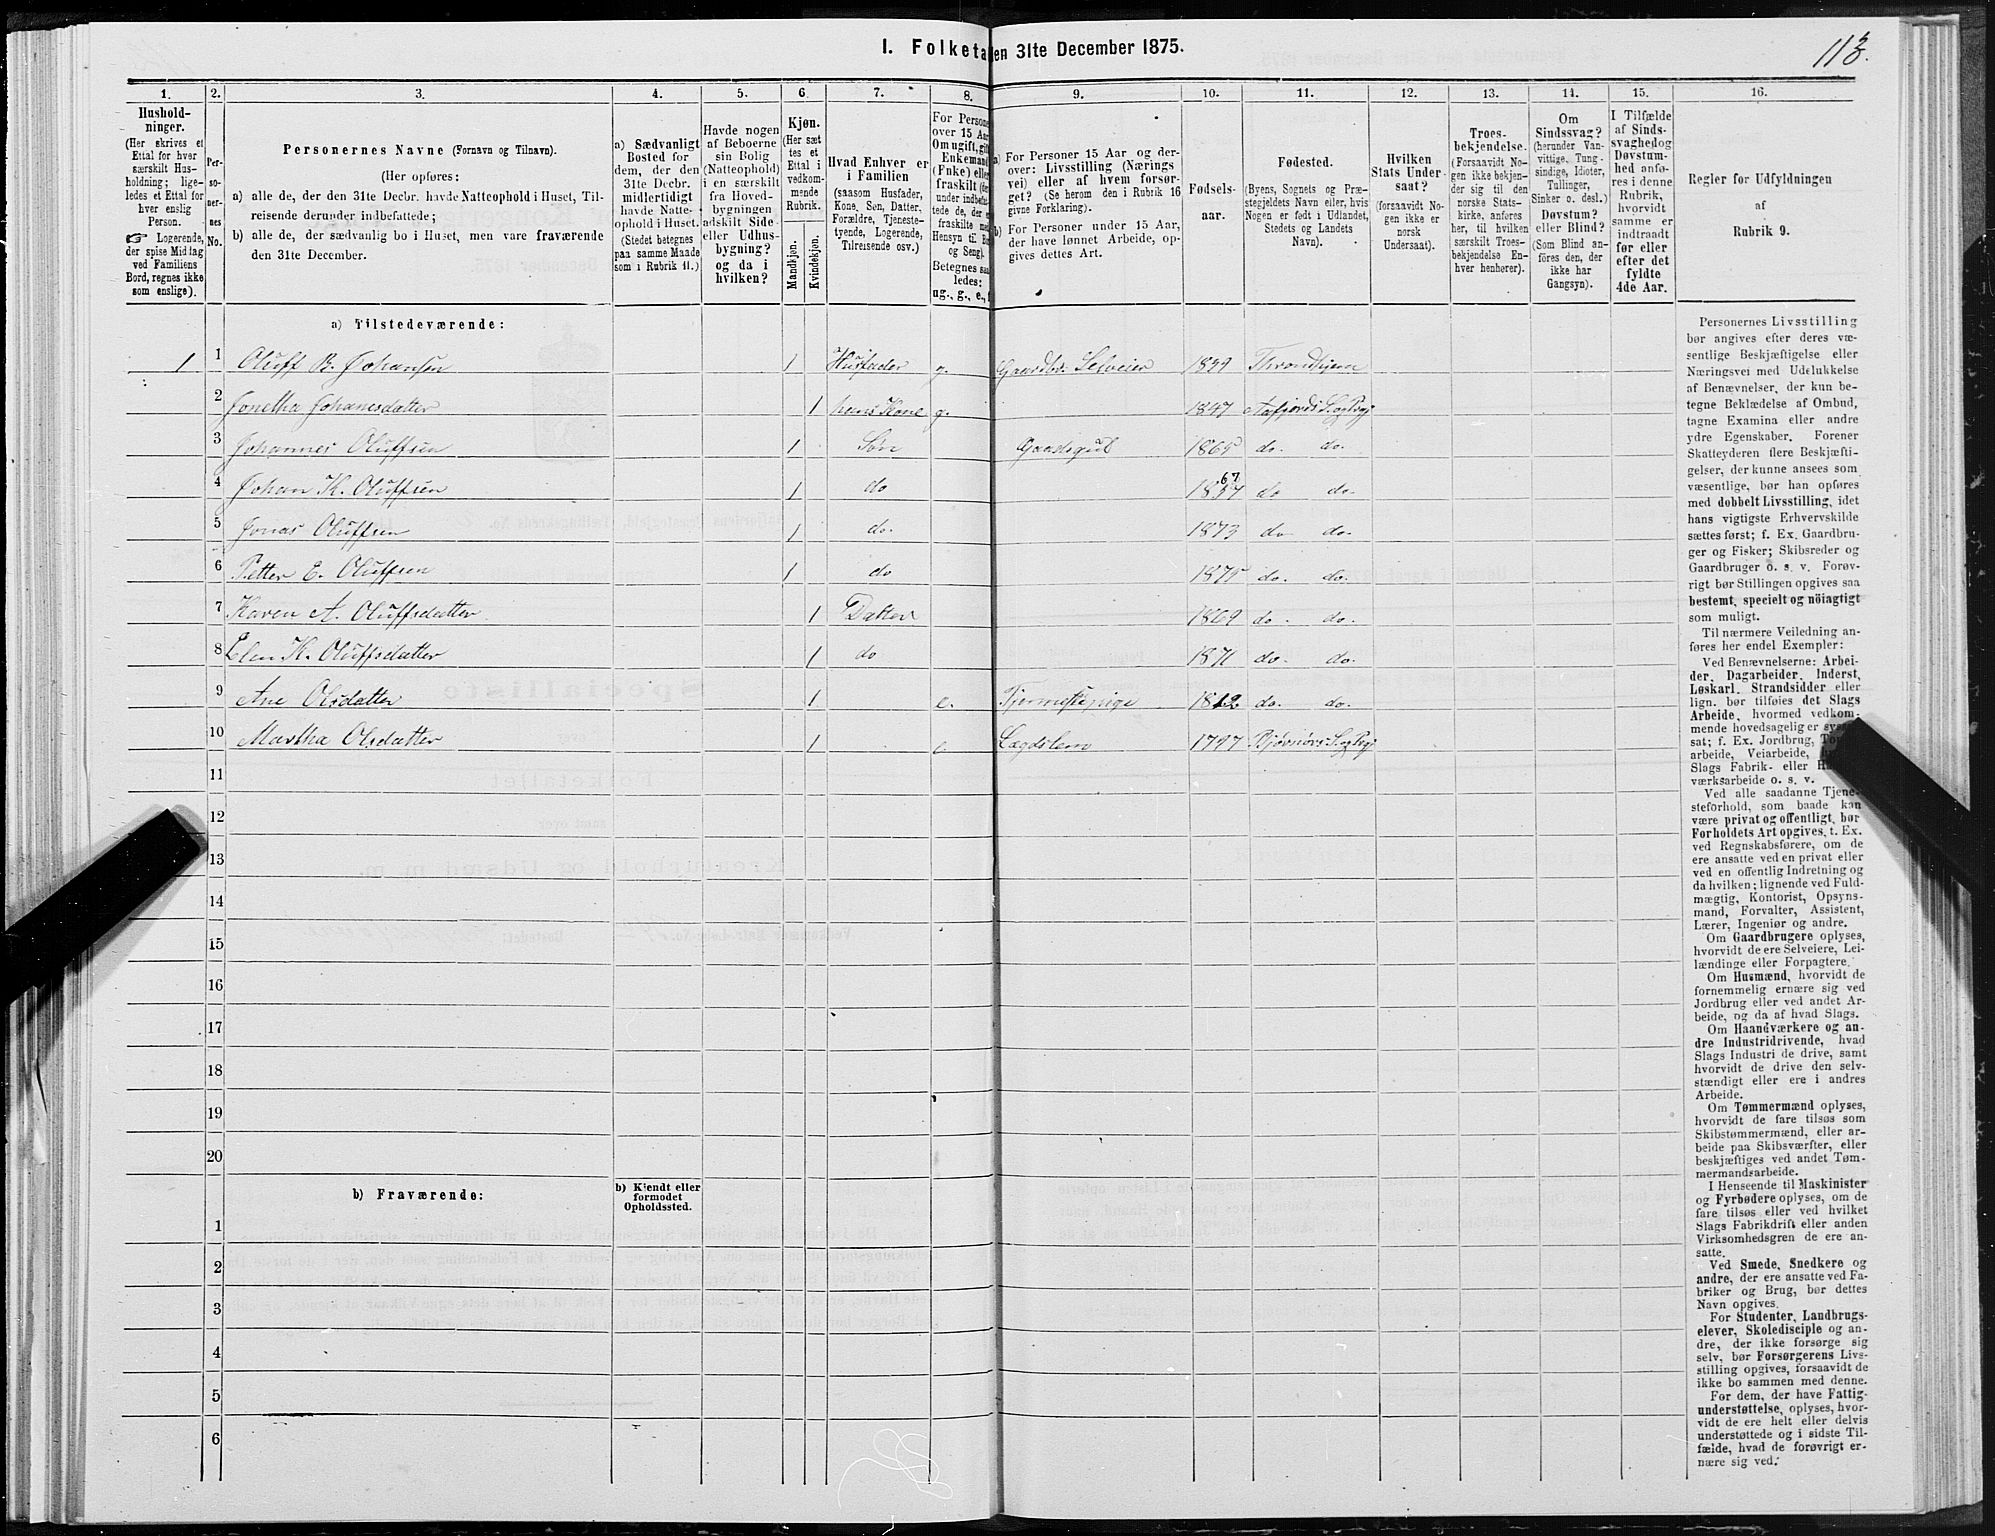 I. Folketa en 31te December 1875.
113.
1.
2.
3.
4.
5.
6.
7.
8.
9.
10.
11.
12.
13.
14.
15.
16.
Hushold-
ninger.
(Her skrives et
Ettal for hver
særskilt Hus-
holdning; lige-
ledes et Ettal for
hver enslig
Person.
☞ Logerende,
der spise Middag
ved Familiens
Bord, regnes ikke
som enslige).
Per-
so-
ner-
nes
No.
Personernes Navne (Fornavn og Tilnavn).
(Her opføres:
a) alle de, der den 31te Decbr. havde Natteophold i Huset, Til-
reisende derunder indbefattede;
b) alle de, der sædvanlig bo i Huset, men vare fraværende
den 31te December.
a) Sædvanligt
Bosted for
dem, der den
31te Decbr.
midlertidigt
havde Natte-
ophold i Huset.
(Stedet betegnes
paa samme Maade
som i Rubrik 11.)
Havde nogen
af Beboerne
sin Bolig
(Natteophold)
i en særskilt
fra Hoved-
bygningen
adskilt Side-
eller Udhus-
bygning?
og da i
hvilken?
Kjøn.
(Her sæt-
tes et
Ettal i
vedkom-
mende
Rubrik.
Mandkjøn.
Kvindekjøn.
Hvad Enhver er
i Familien
(saasom Husfader,
Kone, Søn, Datter,
Forældre, Tjeneste-
tyende, Logerende,
Tilreisende osv.)
For Persone
over 15 Aar
Om ugift, gif
Enkemand
(Enke) elle
fraskilt (de
under indbefat-
tede de, der e
fraskilte med
Hensyn til Bo
og Seng).
Betegnes saa
ledes:
ug., g., e., f
a) For Personer 15 Aar og der-
over: Livsstilling (Nærings
vei) eller af hvem forsør-
get? (Se herom den i Rubrik 16
givne Forklaring).
b) For Personer under 15 Aar,
der have lønnet Arbeide, op-
gives dettes Art.
Fødsels-
aar.
Fødested.
(Byens, Sognets og Præ-
stegjeldets Navn eller, hvis
Nogen er født i Udlandet,
Stedets og Landets
Navn).
Hvilken
Stats Under-
saat?
(forsaavidt No-
gen ikke er
norsk
Undersaat).
Troes-
bekjendelse.
(Forsaavidt No-
gen ikke bekjen-
der sig til den
norske Stats-
kirke, anføres
her, til hvilken
særskilt Troes-
bekjendelse En-
hver henhører).
Om
Sindssvag?
(herunder Van-
vittige, Tung-
sindige, Idioter,
Tullinger,
Sinker o. desl.)
Døvstum?
eller Blind?
(Som Blind an-
føres den, der
ikke har
Gangsyn).
I Tilfælde
af Sinds-
svaghed og
Døvstum-
hed anfø-
res i denne
Rubrik,
hvorvidt
samme er
indtraadt
før eller
efter det
fyldte
4de Aar.
Regler for Udfyldningen
af
Rubrik 9.
a) Tilstedeværende:
1 1 Oluff B. Johansen 1 Husfader g. Gaardbr. Selveier Throndhjem
2 Jonetha Johanesdatter 1 hans Kone g. 1847 Aafjords S. og Pgj
3 Johannes Oluffsen 1 Søn Gaardsgut 1865 do. do.
4 Johan K. Oluffsen 1 do 67 do do.
5 Jonas Oluffsen 1 do. 1873 do do.
6 Petter E. Oluffsen 1 do 1875 do. do.
7 Karen A. Oluffsdatter. 1 Datter 1869 do. do.
8 Elen K. Oluffsdatter 1 do 1871 do. do.
9 Ane Olsdatter 1 e. Tjennestepige 1812 do. do.
10 Martha Olsdatter 1 e Lægdslem 1797 Bjørnørs S. og Pgj
11
12
13
14
15
16
17
18
19
20
b) Fraværende:
b) Kjendt eller
formodet
Opholdssted.
1
2
3
4
5
6
Personernes Livsstilling
bør angives efter deres væ-
sentlige Beskjæftigelse eller
Næringsvei med Udelukkelse
af Benævnelser, der kun be-
tegne Beklædelse af Ombud,
tagne Examina eller andre
ydre Egenskaber. Forener
Skatteyderen flere Beskjæfti-
gelser, der kunne ansees som
væsentlige, bør han opføres
med dobbelt Livsstilling, idet
hans vigtigste Erhvervskilde
sættes først; f. Ex. Gaardbru-
ger og Fisker; Skibsreder og
Gaardbruger o. s. v. Forøv-
rigt bør Stillingen opgives saa
bestemt, specielt og nöiagtigt
som muligt.
Til nærmere Veiledning an-
føres her endel Exempler:
Ved Benævnelserne: Arbei-
der, Dagarbeider, Inderst,
Løskarl, Strandsidder eller
lign. bør tilføies det Slags
Arbeide, hvormed vedkom-
mende hovedsagelig er syssel-
sat; f. Ex. Jordbrug, Tøm
arbeide, Veiarbeide,
Slags Fabrik- eller H
værksarbeide o. s. v.
Ved alle saadanne Tjene-
steforhold, som baade kan
være privat og offentligt, bør
Forholdets Art opgives, t. Ex.
ved Regnskabsførere, om de
ere ansatte ved en privat eller
ved en offentlig Indretning og
da hvilken; lignende ved Fuld-
mægtig, Kontorist, Opsyns-
mand, Forvalter, Assistent,
Lærer, Ingeniør og andre.
Om Gaardbrugere oplyses,
hvorvidt de ere Selveiere, Lei-
lændinge eller Forpagtere.
Om Husmænd, hvorvidt de
fornemmelig ernære sig ved
Jordbrug eller ved andet Ar-
beide, og da af hvad Slags.
Om Haandværkere og an-
dre Industridrivende, hvad
Slags Industri de drive, samt
hvorvidt de drive den selv-
stændigt eller ere i andres
Arbeide.
Om Tømmermænd oplyses,
hvorvidt de fare tilsøs som
Skibstømmermænd, eller ar-
beide paa Skibsværfter, eller
beskjæftiges ved andet Tøm-
mermandsarbeide.
I Henseende til Maskinister
og Fyrbødere oplyses, om de
fare tilsøs eller ved hvilket
Slags Fabrikdrift eller anden
Virksomhedsgren de ere an-
satte.
Ved Smede, Snedkere og
andre, der ere ansatte ved Fa-
briker og Brug, bør dettes
Navn opgives.
For Studenter, Landbrugs-
elever, Skoledisciple og an-
dre, der ikke forsørge sig
selv, bør Forsørgerens Livs-
stilling opgives, forsaavidt de
ikke bo sammen med denne.
For dem, der have Fattig-
understøttelse, oplyses, hvor-
vidt de ere helt eller delvis
understøttede og i sidste Til-
fælde, hvad de forøvrigt er-
nære sig ved.